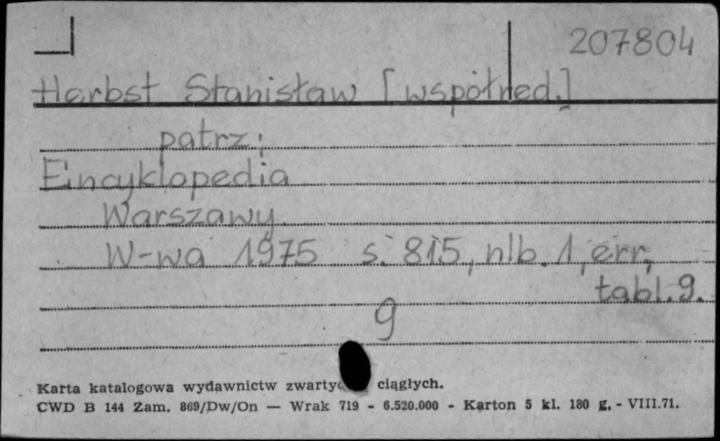 207804
Herbst Stanisław [współred.]
patrz:
Encyklopedia
Warszawy
W-wa 1975 s. 815, nlb. 1, err,
tabl. 9.
9
Karta katalogowa wydawnictw ciągłych.
CWD B 144 Zam. 869/Dw/On — Wrak 719 - 6.520.000 - Karton 5 kl. 180 g. - VIII.71.